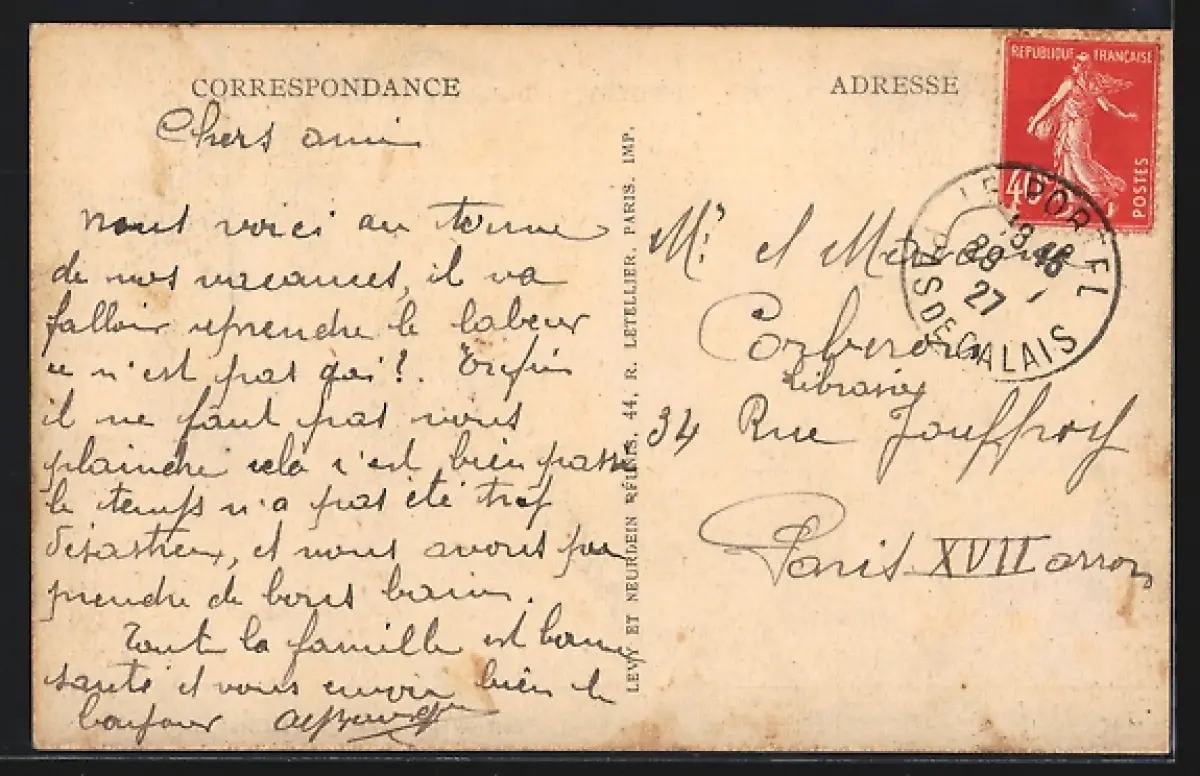 CORRESPONDANCE
Chers amis
nous voici au terme
de nos vacances, il va
falloir reprendre le labeur
ce n'est pas gai!. Enfin
il ne faut pas nous
plaindre cela s'est bien passé
le temps n'a pas été trop
désastreux, et nous avons pu
prendre de bons bains.
Toute la famille est bonne
santé et vous envoie bien le
bonjour
LEVY ET NEURDEIN RÉUNIS, 44, R. LETELLIER, PARIS. IMP.
ADRESSE
REPUBLIQUE FRANÇAISE
POSTES
40c
LE PORTEL
PAS DE CALAIS
27
Mr et Madame
Libraire
34 Rue Jouffroy
Paris XVII arron